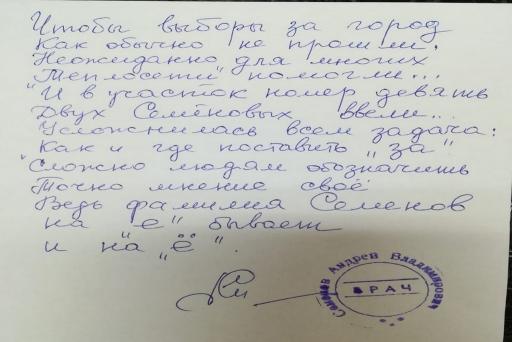 Чтобы выборы за город
Как обычно не прошли.
Неожиданно для многих
"Теплосети" помогли...
"И в участок номер девять
Двух Семёновых ввели...
Усложнилась всем задача:
Как и где поставить "за"
"Сложно людям обозначить
Точно мнение своё
Ведь фамилия Семенов
на "е" бывает
и на "ё".
Андрей Владимирович
ВРАЧ